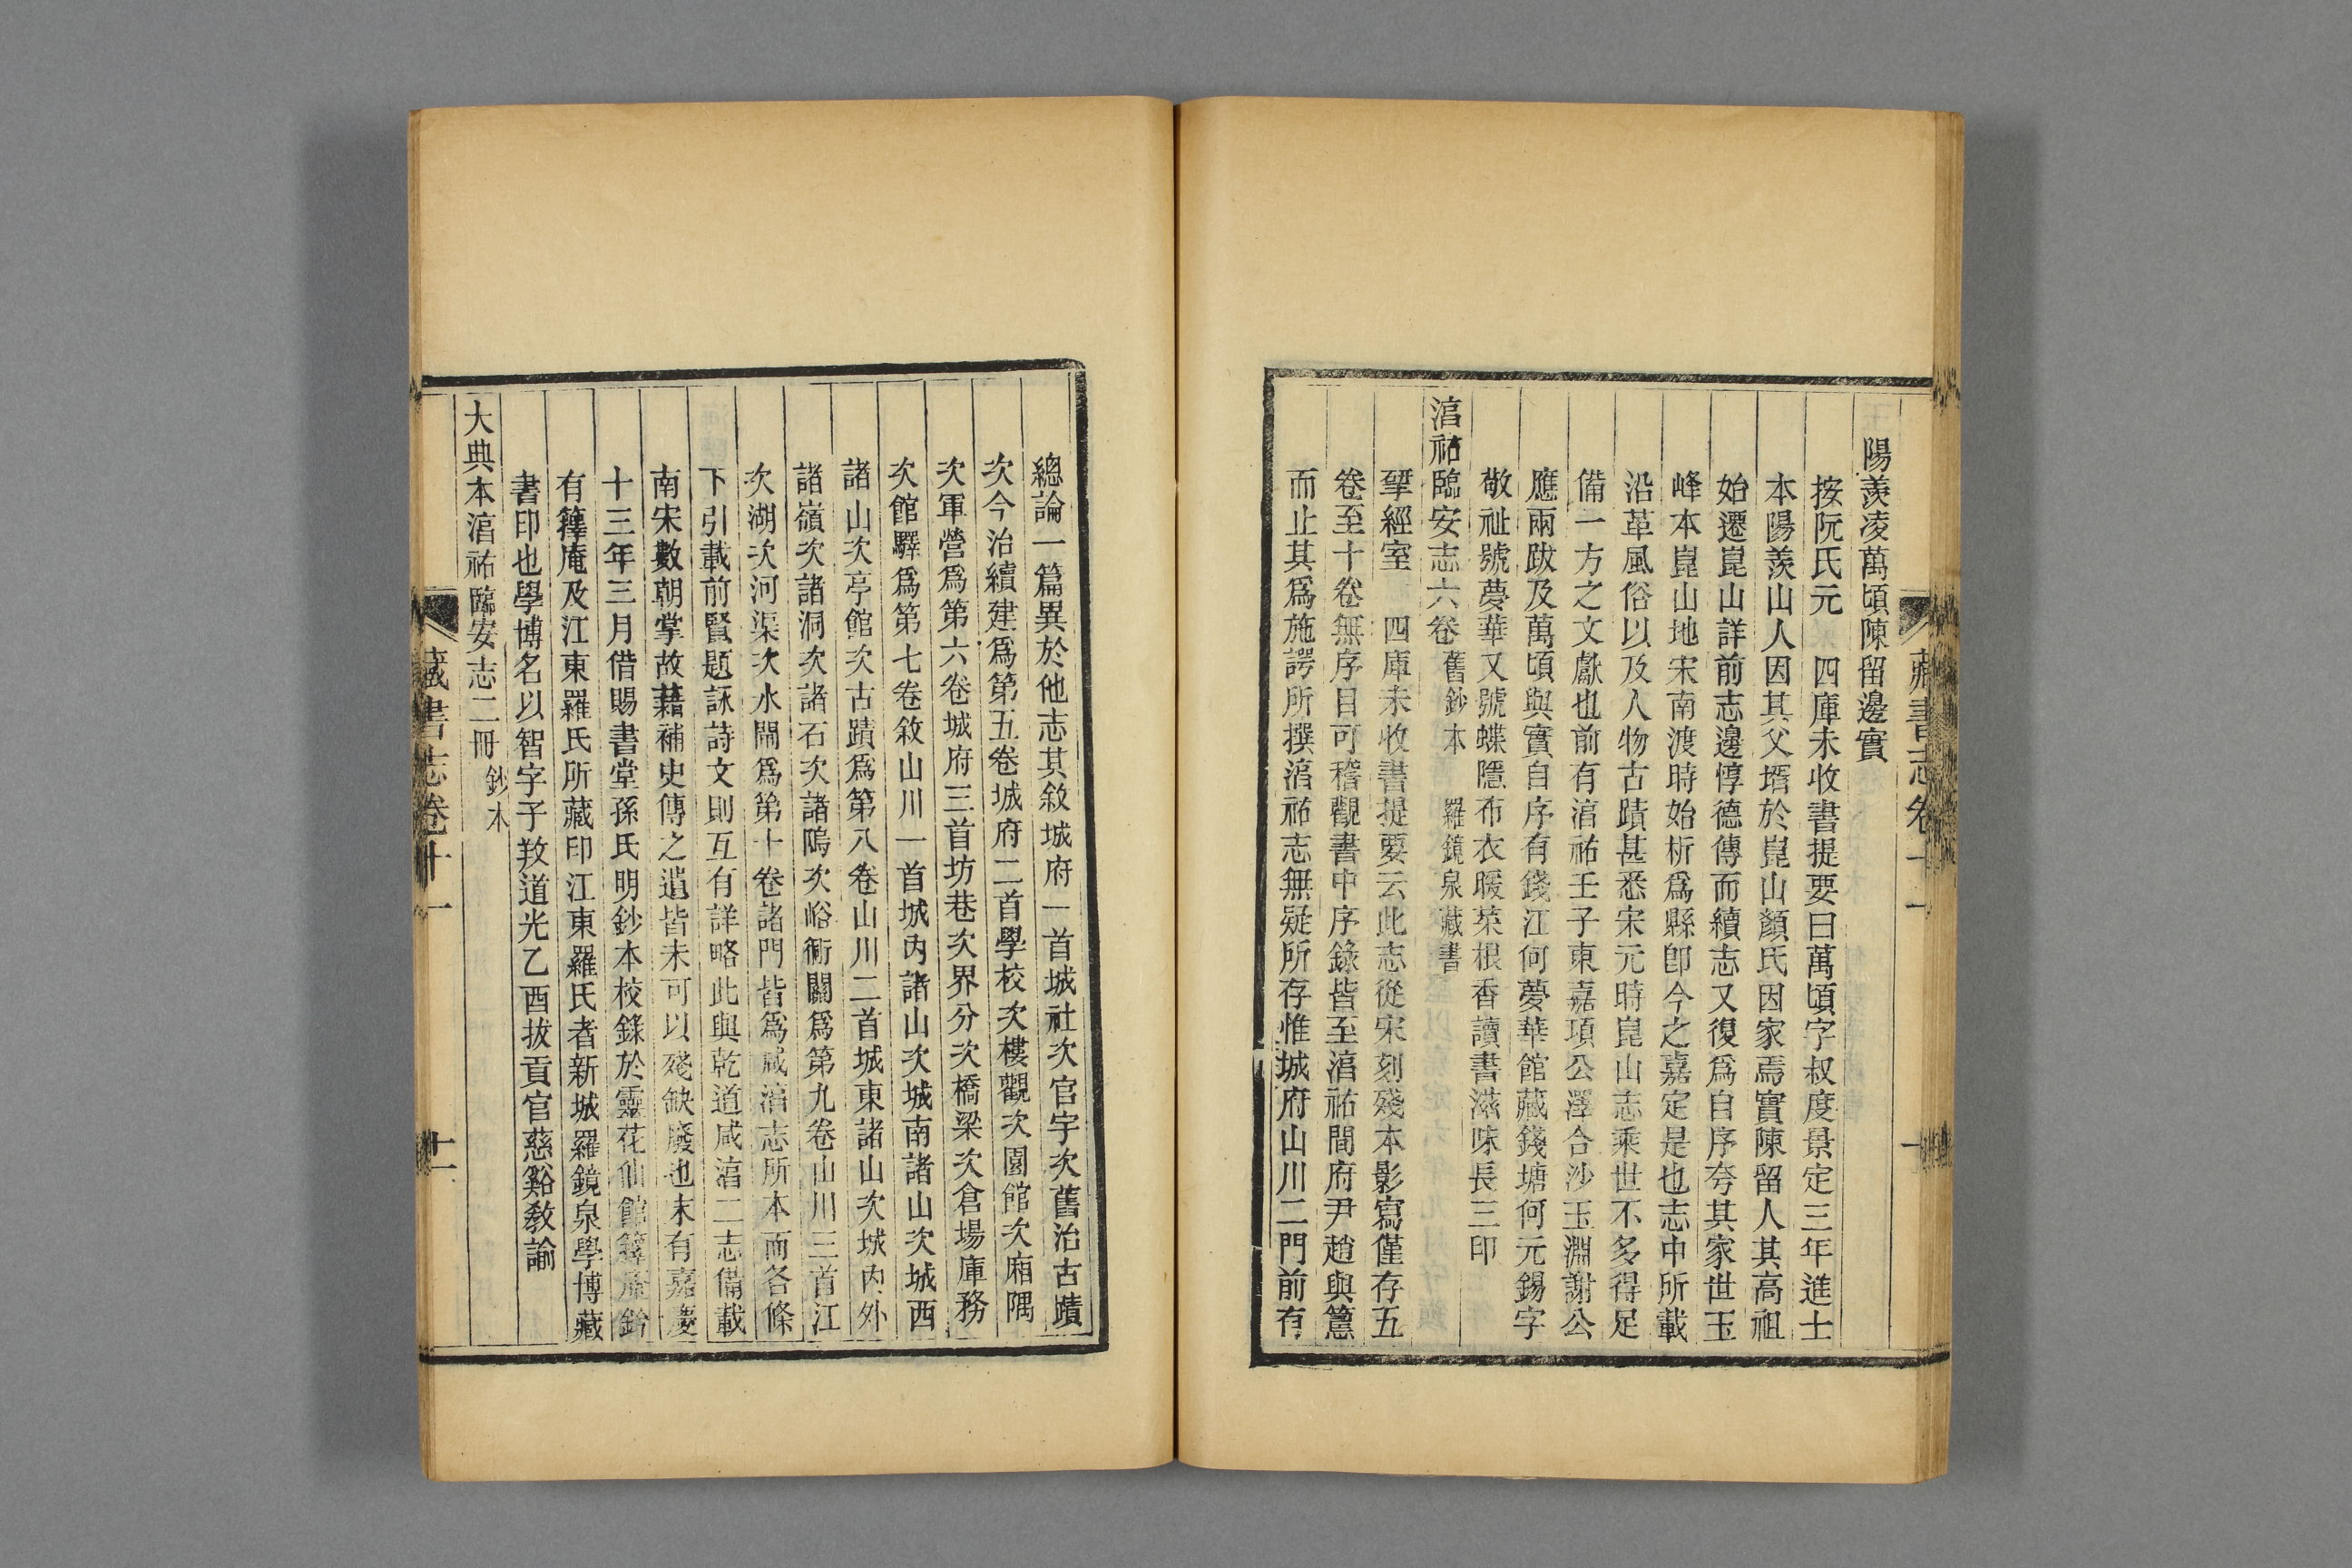 陽羨凌萬頃陳留邊實
按阮氏元 四庫未收書提要曰萬頃字叔度景定三年進士
本陽羨山人因其父壻於崑山顏氏因家焉實陳留人其高祖
始遷崑山詳前志邊惇德傳而續志又復爲自序夸其家世玉
峰本崑山地宋南渡時始析爲縣卽今之嘉定是也志中所載
沿革風俗以及人物古蹟甚悉宋元時崑山志乘世不多得足
備一方之文獻也前有湻祐壬子東嘉項公澤合沙玉淵謝公
應兩跋及萬頃與實自序有錢江何夢華館藏錢塘何元錫字
敬祉號夢華又號蝶隱布衣暖菜根香讀書滋味長三印
湻祐臨安志六卷 舊鈔本 羅鏡泉藏書
揅經室 四庫未收書提要云此志從宋刻殘本影寫僅存五
卷至十卷無序目可稽觀書中序錄皆至湻祐間府尹趙與𥲅
而止其爲施諤所撰湻祐志無疑所存惟城府山川二門前有
總論一篇異於他志其敘城府一首城社次官宇次舊治古蹟
次今治續建爲第五卷城府二首學校次樓觀次園館次廂隅
次軍營爲第六卷城府三首坊巷次界分次橋梁次倉場庫務
次館驛爲第七卷敘山川一首城內諸山次城南諸山次城西
諸山次亭館次古蹟爲第八卷山川二首城東諸山次城內外
諸嶺次諸洞次諸石次諸隖次峪衕關爲第九卷山川三首江
次湖次河渠次水閘爲第十卷諸門皆爲咸湻志所本而各條
下引載前賢題詠詩文則互有詳略此與乾道咸湻二志備載
南宋數朝掌故藉補史傳之遺皆未可以殘缺廢也末有嘉慶
十三年三月借賜書堂孫氏明鈔本校錄於靈花仙館籜庵鈐
有籜庵及江東羅氏所藏印江東羅氏者新城羅鏡泉學博藏
書印也學博名以智字子敉道光乙酉拔貢官慈谿敎諭
大典本湻祐臨安志二冊 鈔本
藏書志卷十一
十一